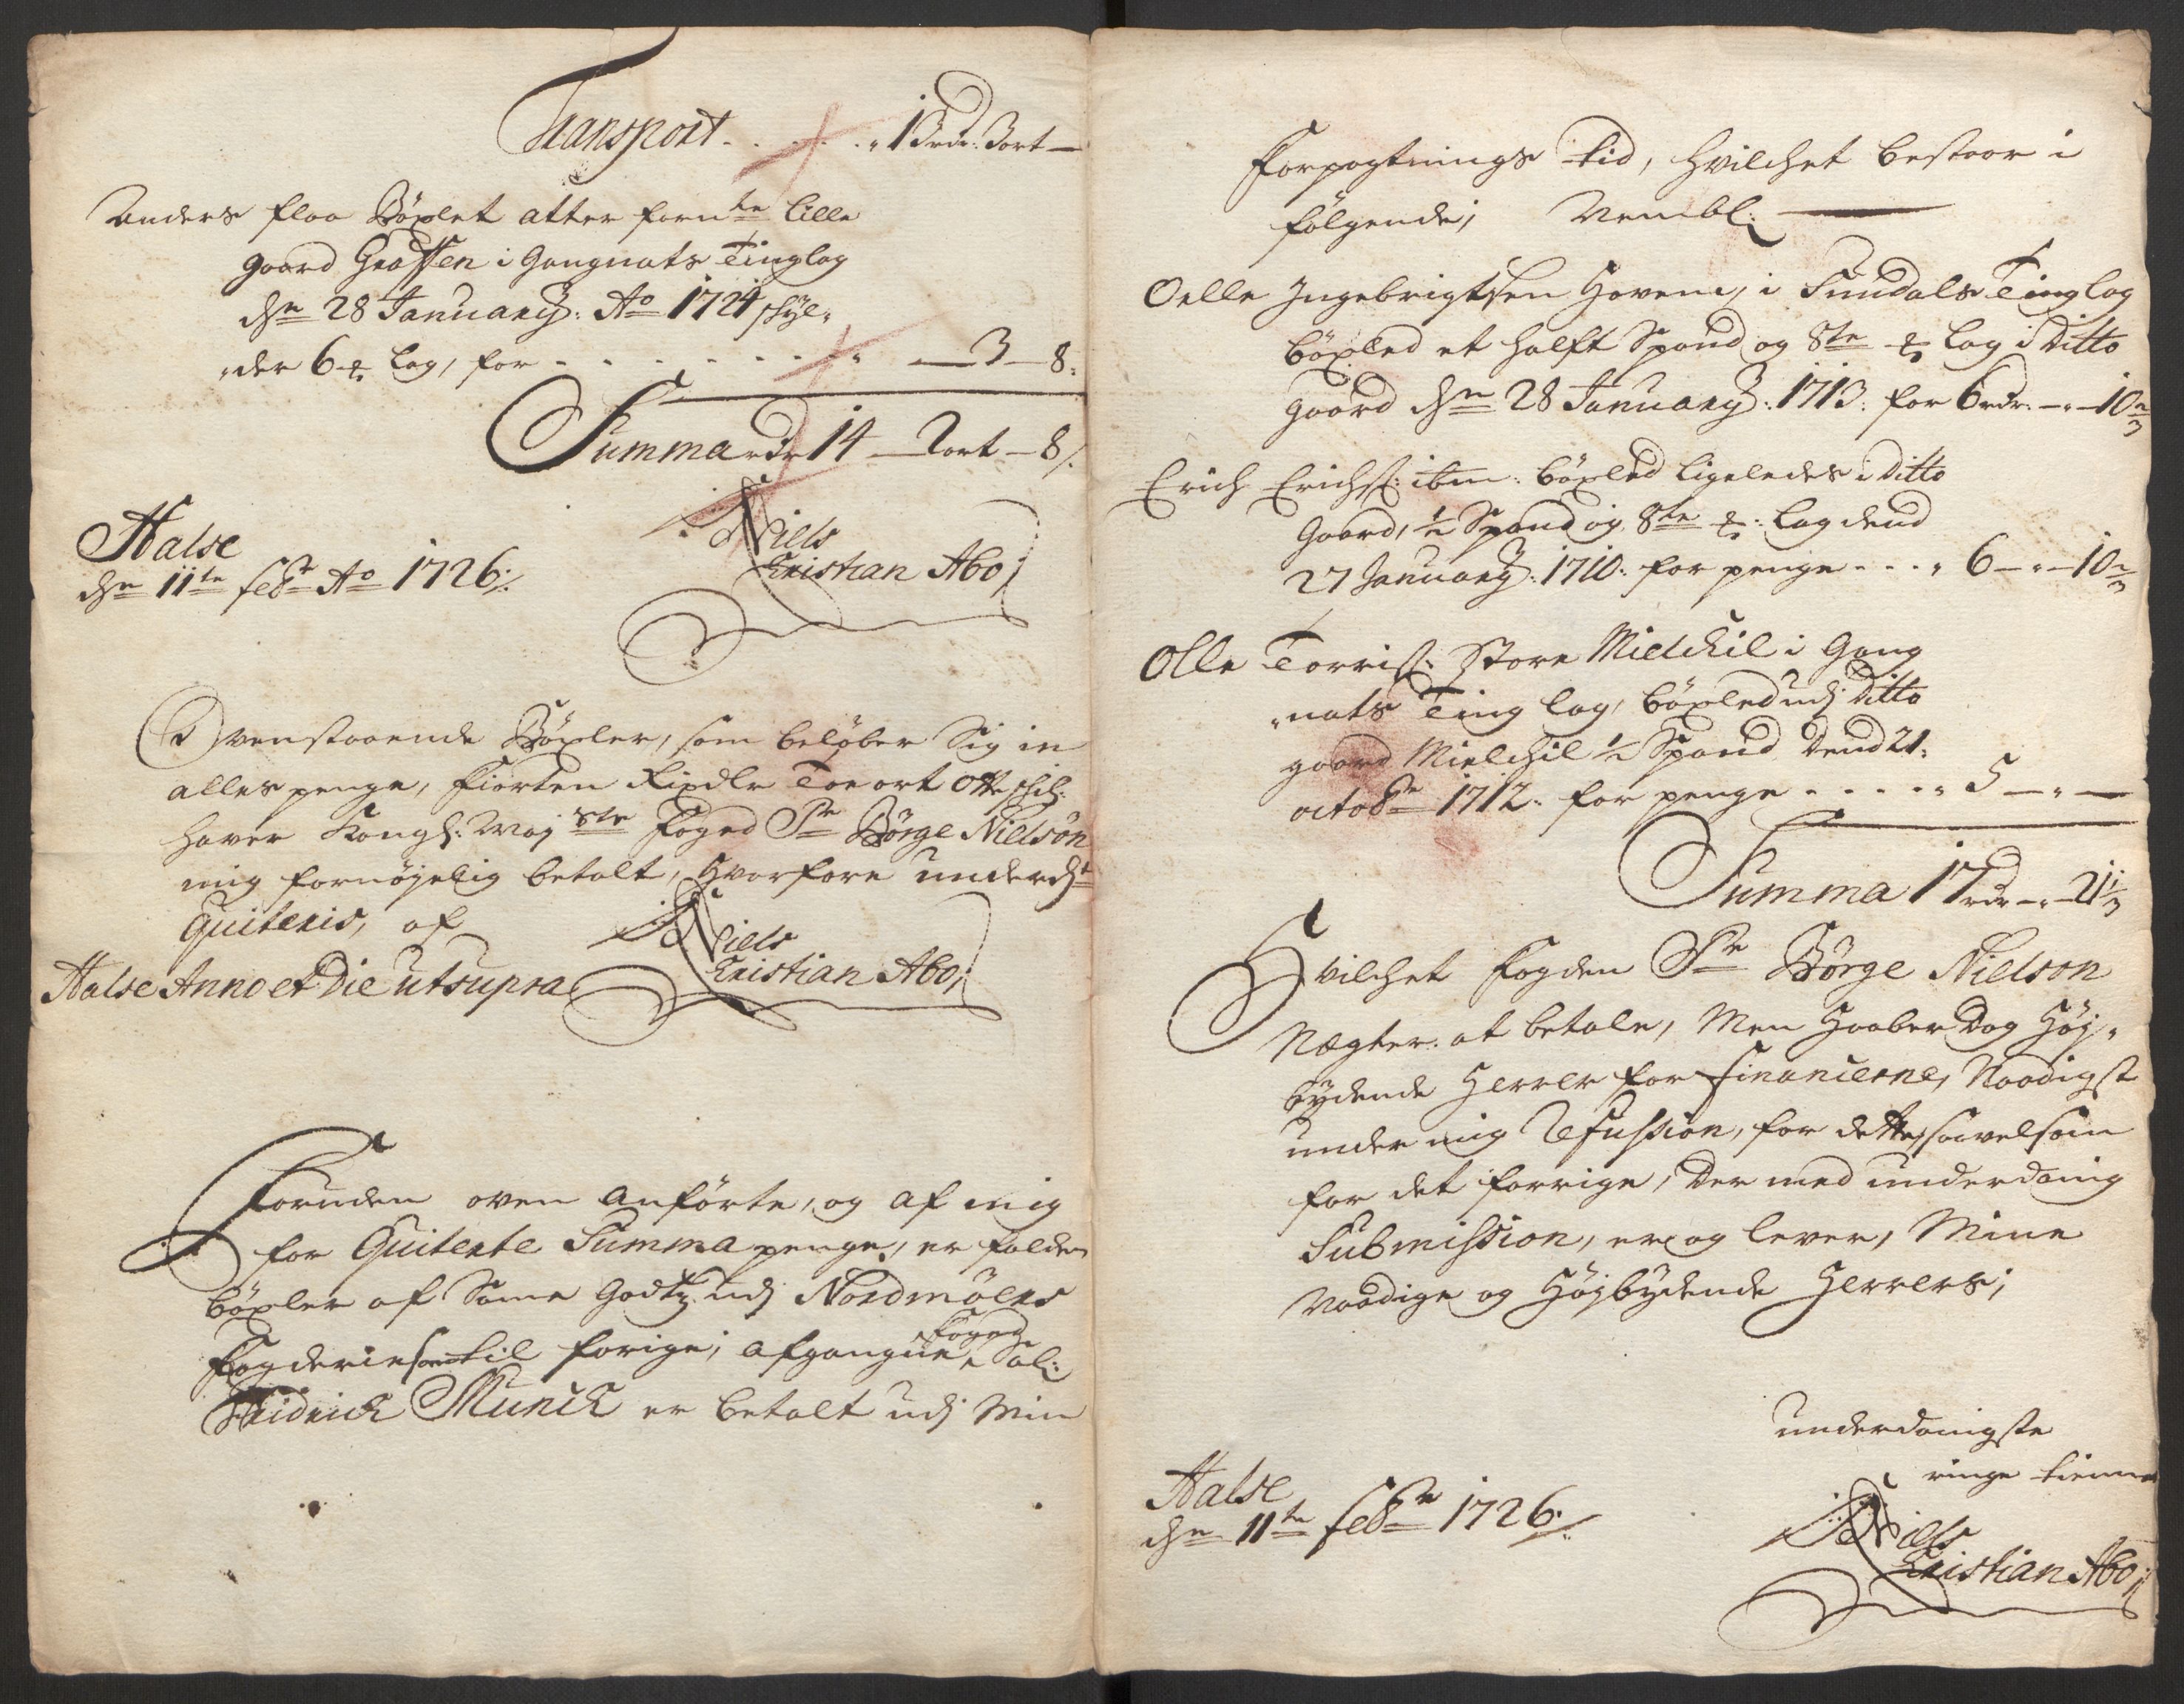 Transport . . . . . " 13 rdr: 3 ort —
Anders Floa Böxlet atter forn te lille
gaard Graffsen i Gangnats Tinglag
d n 28 January: A o 1724 skyl=
=der 6 lag, for . . . . . . . " — 3 — 8:
Summa rdr 14 — 2 ort — 8 /.
Halse
d n 11 te feb r A o 1726 /.
Niels
Kristian Abo /
Ovenstaaende Böxler, som beløber Sig in
alles penge, fiorten Rixdlr Toe ort Otte skil:
haver Kongl: Maj ste Foged Sr Børge Nielsön
mig fornøyelig betalt, Hvorfore underd t
Quiteris, af
Niels
Kristian Abo /
Halse Anno et Die ut supra
Foruden oven Anførte, og af mig
for Quiterte Summa penge, er falden
böxler af Samme Godtz udj Nordmöers
Fogderie som til forige, afgangne Foged Sal:
Fridrich Munch er betalt udj Min
Forpagtnings tid, hvilchet bestaar i
følgende; Nembl: —
Oelle Ingebrigtsen Hoven, i Sundals Tinglag
böxled et halft Spand og 8 te lag i Ditto
gaard d n 28 January: 1713: for 6 rdr: — " — 10 2/3
Erich Erichs: ibm: böxled ligeledes i Ditto
Gaard, 1/2 Spand og 8 te lag dend
27 January: 1710: for penge . . . " 6 — " — 10 2/3
Olle Torris: Store Mielchil i Gang
=nats Ting lag, böxled udj Ditto
gaard Mielchil 1/2 Spand Dend 21:
octob r 1712: for penge . . . . . " 5 — " —
Summa 17 rdr — " — 21 1/3
Hvilchet Fogden Sr Börge Nielson
Nægter at betale, Men Haaber Dog Høy=
bydende Herrer for Financerne, Naadigst
under mig Refussion, for dette, saavelsom
for det forrige, Der med underdanig
Submission, er og lever, Mine
Naadige og Høybydende Herrers;
underdanigste
ringe tiener
Halse
d n 11 te feb r 1726 /.
Niels
Kristian Abo /